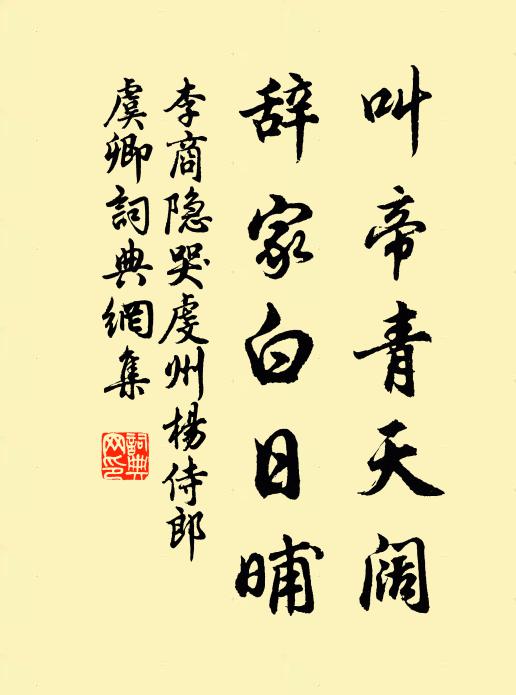 叫帝青天阔
辞家白日晡
李商隐哭虔州楊侍郎
虞卿詞典網集
詞典网印